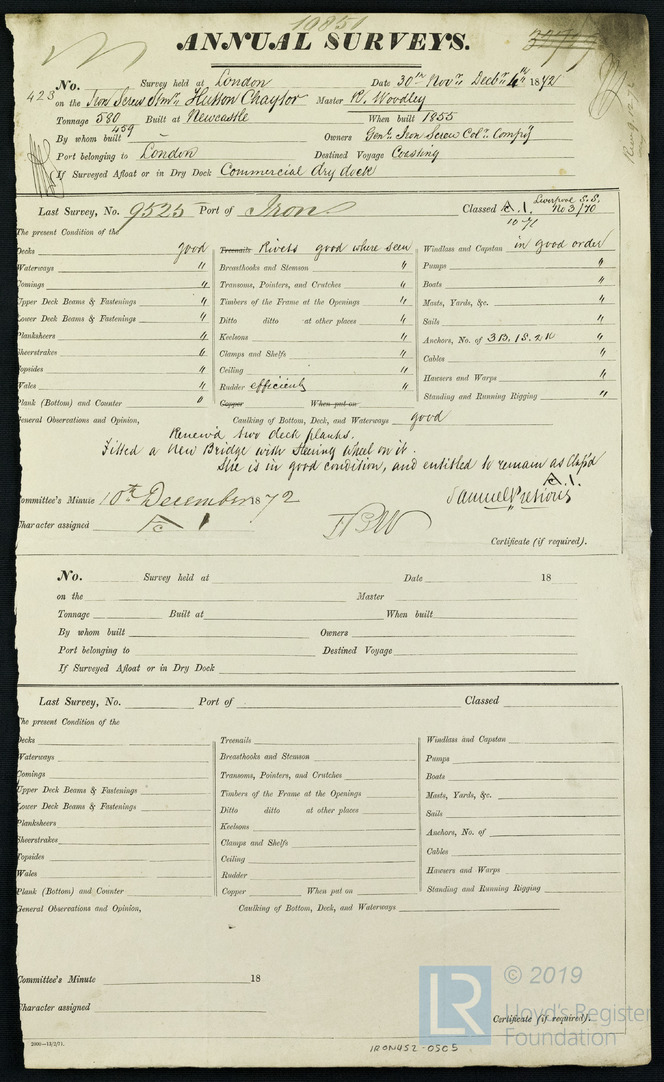 10850
ANNUAL SURVEYS.
No. 423 Survey held at London Date 30th Novr. Decbr. 4th 1872
on the Iron Screw Stmr. Hutton Chaytor Master R. Woodley
Tonnage 580 459 Built at Newcastle When built 1855
By whom built – Owners Genl. Iron Screw Coln. Compy
Port belonging to London Destined Voyage Coasting
If Surveyed Afloat or in Dry Dock Commercial dry dock
Last Survey, No. 9525 Port of Iron Classed A.1. Liverpool S.S. No 3/70
10-71
The present Condition of the
Decks good Treenails Rivets good where seen Windlass and Capstan in good order
Waterways " Breasthooks and Stemson " Pumps "
Comings " Transoms, Pointers, and Crutches " Boats "
Upper Deck Beams & Fastenings " Timbers of the Frame at the Openings " Masts, Yards, &c. "
Lower Deck Beams & Fastenings " Ditto ditto at other places " Sails "
Planksheers " Keelsons " Anchors, No. of 3 B. 1 S. 2 K "
Sheerstrakes " Clamps and Shelfs " Cables "
Topsides " Ceiling " Hawsers and Warps "
Wales " Rudder efficient " Standing and Running Rigging "
Plank (Bottom) and Counter " Copper When put on
General Observations and Opinion, Caulking of Bottom, Deck, and Waterways good
Renew'd two deck planks.
Fitted a New Bridge with Steering Wheel on it.
She is in good condition, and entitled to remain as Class'd
A.1.
Committee's Minute 10th December 1872 Samuel Pretious
Character assigned A 1
Certificate (if required).
No. Survey held at Date 18
on the Master
Tonnage Built at When built
By whom built Owners
Port belonging to Destined Voyage
If Surveyed Afloat or in Dry Dock
Last Survey, No. Port of Classed
The present Condition of the
Decks Treenails Windlass and Capstan
Waterways Breasthooks and Stemson Pumps
Comings Transoms, Pointers, and Crutches Boats
Upper Deck Beams & Fastenings Timbers of the Frame at the Openings Masts, Yards, &c.
Lower Deck Beams & Fastenings Ditto ditto at other places Sails
Planksheers Keelsons Anchors, No. of
Sheerstrakes Clamps and Shelfs Cables
Topsides Ceiling Hawsers and Warps
Wales Rudder Standing and Running Rigging
Plank (Bottom) and Counter Copper When put on
General Observations and Opinion, Caulking of Bottom, Deck, and Waterways
Committee's Minute 18
Character assigned
Certificate (if required).
2000—13/2/71.
IRON452-0505
LR © 2019
Lloyd's Register
Foundation